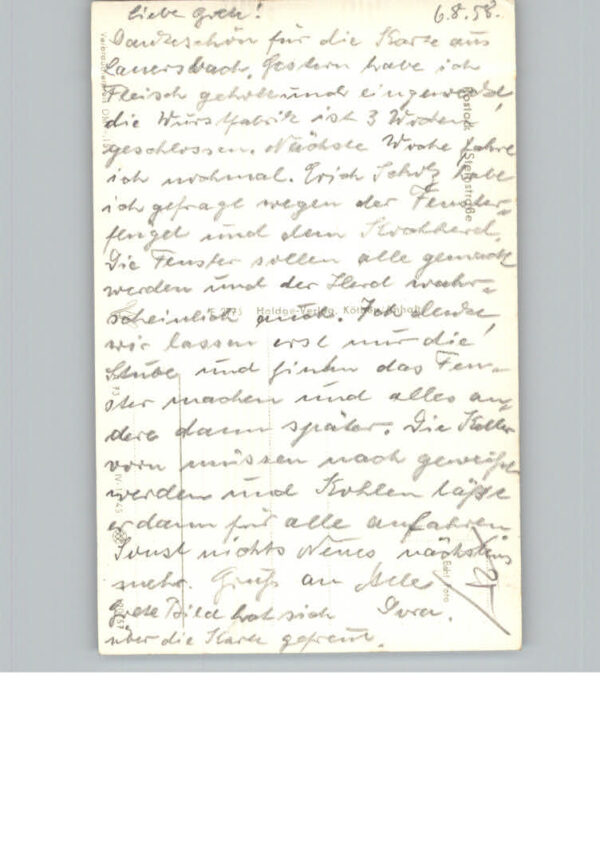 liebe Grete! 6.8.58.
Dankeschön für die Karte aus
Lauersbach. Gestern habe ich
Fleisch geholt und eingeweckt,
die Wurstfabrik ist 3 Wochen
geschlossen. Nächste Woche fahre
ich nochmal. Erich Scholz habe
ich gefragt wegen der Fenster-
flügel und dem Kochherd.
Die Fenster sollen alle gemacht
werden und der Herd wahr-
scheinlich auch. Ich denke,
wir lassen erst nur die
Stube und hinten das Fen-
ster machen und alles an-
dere dann später. Die Keller
vorn müssen noch geweißt
werden und Kohlen läßt
er dann für alle anfahren
Sonst nichts Neues nächstens
mehr. Gruß an Alle
Grete Bild hat sich Dora.
über die Karte gefreut.
Rostock Steinstraße
Heldge-Verlag, Köthen/Anhalt
Echt Foto